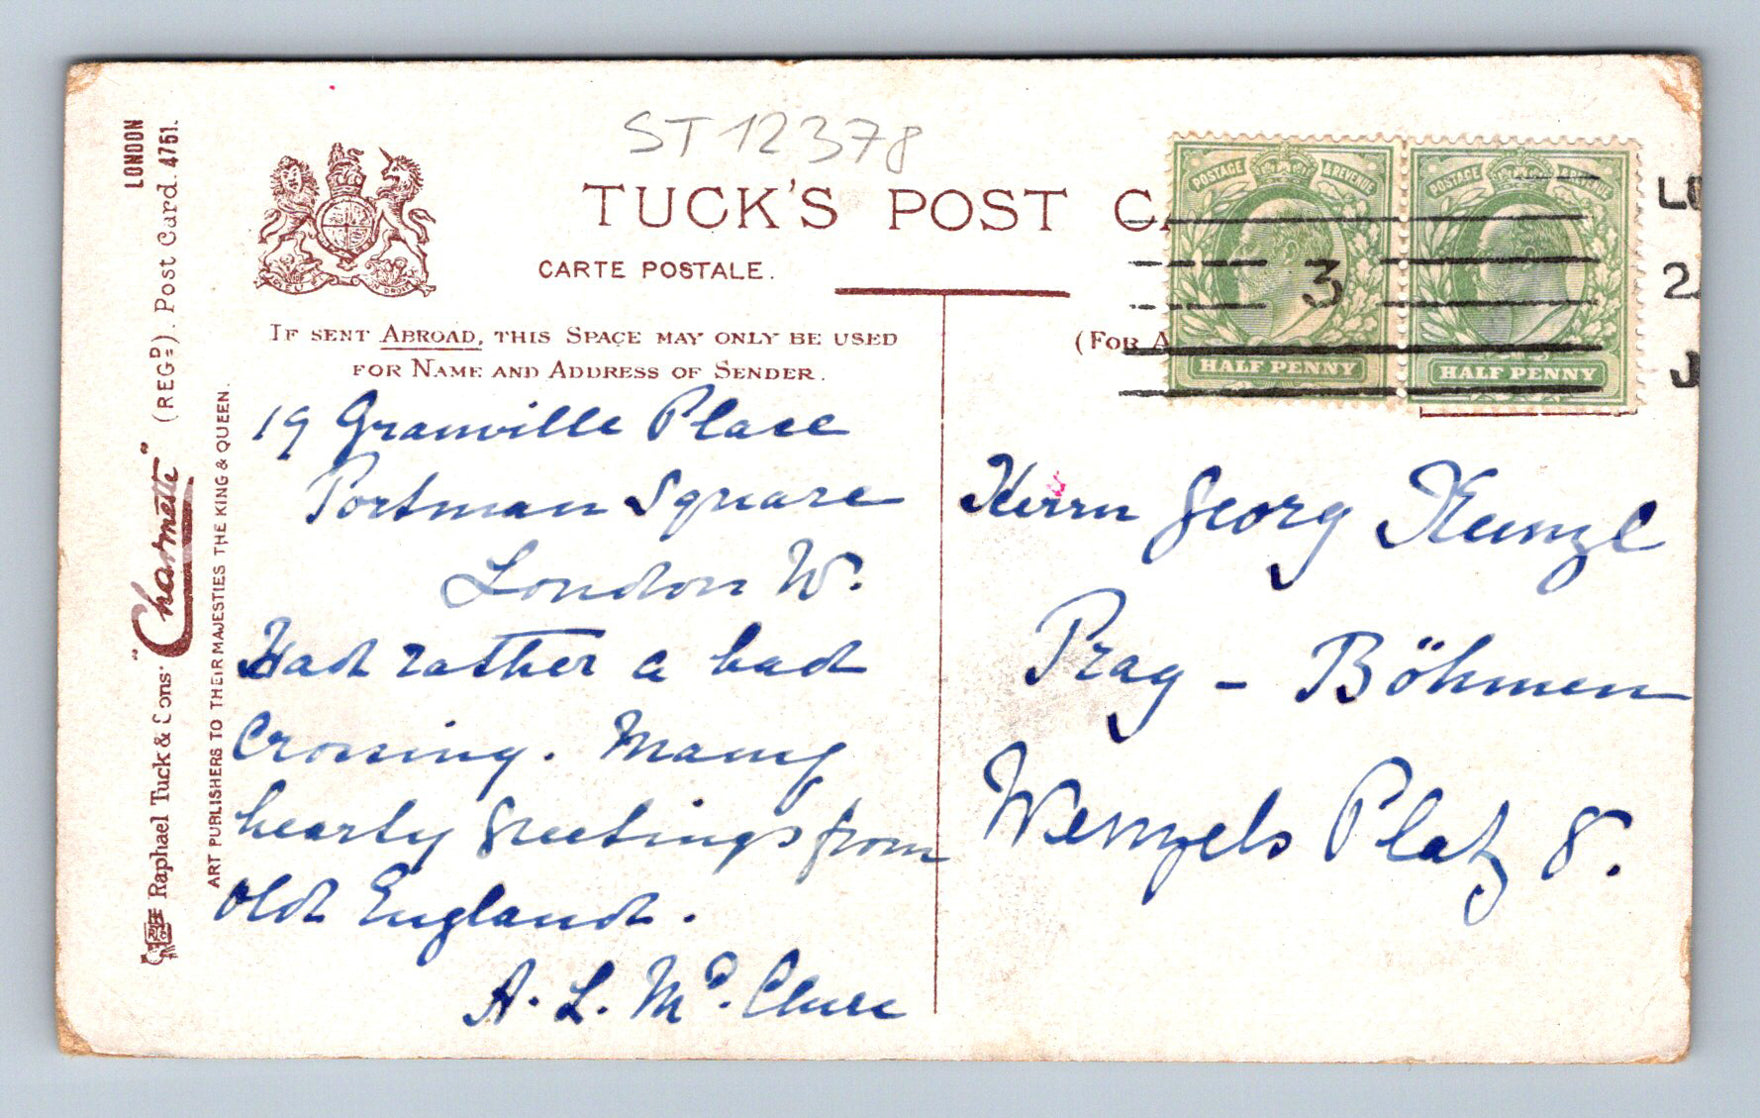 ST12378
TUCK'S POST CA
CARTE POSTALE.
IF SENT ABROAD, THIS SPACE MAY ONLY BE USED
FOR NAME AND ADDRESS OF SENDER.
(FOR A
POSTAGE & REVENUE
HALF PENNY
POSTAGE & REVENUE
HALF PENNY
3
LO
2
J
19 Granville Place
Portman Square
London W.
Had rather a bad
Crossing. Many
hearty greetings from
Old England.
A. L. Mc. Clure
Herrn Georg
Prag - Böhmen
Wenzels Platz 8.
Raphael Tuck & Sons' "Charmette" (REGD). Post Card. 4751.
LONDON
ART PUBLISHERS TO THEIR MAJESTIES THE KING & QUEEN.